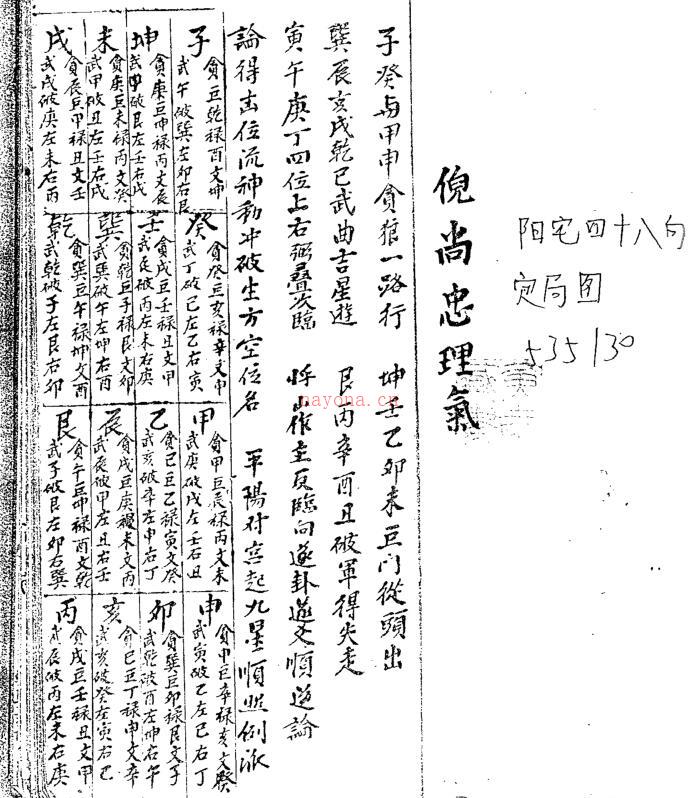 阳宅四十八向
定局图
535/30
倪尚忠理氣
子癸与甲申貪狼一路行 坤壬乙卯未巨门從頭出
巽辰亥戌乾巳武曲吉星逰 艮丙辛酉丑破軍得失走
寅午庚丁四位上右弼叠次臨 作主反臨向逐卦逐爻順逆論
論得出位流神動冲破生方空位名 平陽对宫起九星順照例派
子
貪巨乾禄酉文坤
武午破巽左卯右艮
癸
貪癸巨亥禄辛文申
武丁破巳左乙右寅
甲
貪甲巨辰禄丙文未
武庚破戌左壬右丑
申
貪申巨辛禄亥文癸
武寅破乙左巳右丁
坤
貪庚巨坤禄丙文辰
武甲破艮左壬右戌
壬
貪戌巨壬禄丑文甲
武辰破丙左未右庚
乙
貪巳巨乙禄寅文癸
武亥破辛左申右丁
卯
貪巽巨卯禄艮文子
武乾破酉左坤右午
未
貪庚巨未禄丙文癸
武甲破丑左壬右戌
巽
貪乾巨子禄艮文卯
武巽破午左坤右酉
辰
貪戌巨庚禄未文丙
武辰破甲左丑右壬
亥
貪巳巨丁禄申文辛
武亥破癸左寅右巳
戌
貪辰巨甲禄丑文壬
武戌破庚左未右丙
乾
貪巽巨午禄坤文酉
武乾破子左艮右卯
艮
貪午巨坤禄酉文乾
武子破艮左卯右巽
丙
貪戌巨壬禄丑文甲
武辰破丙左未右庚
nayona.cn